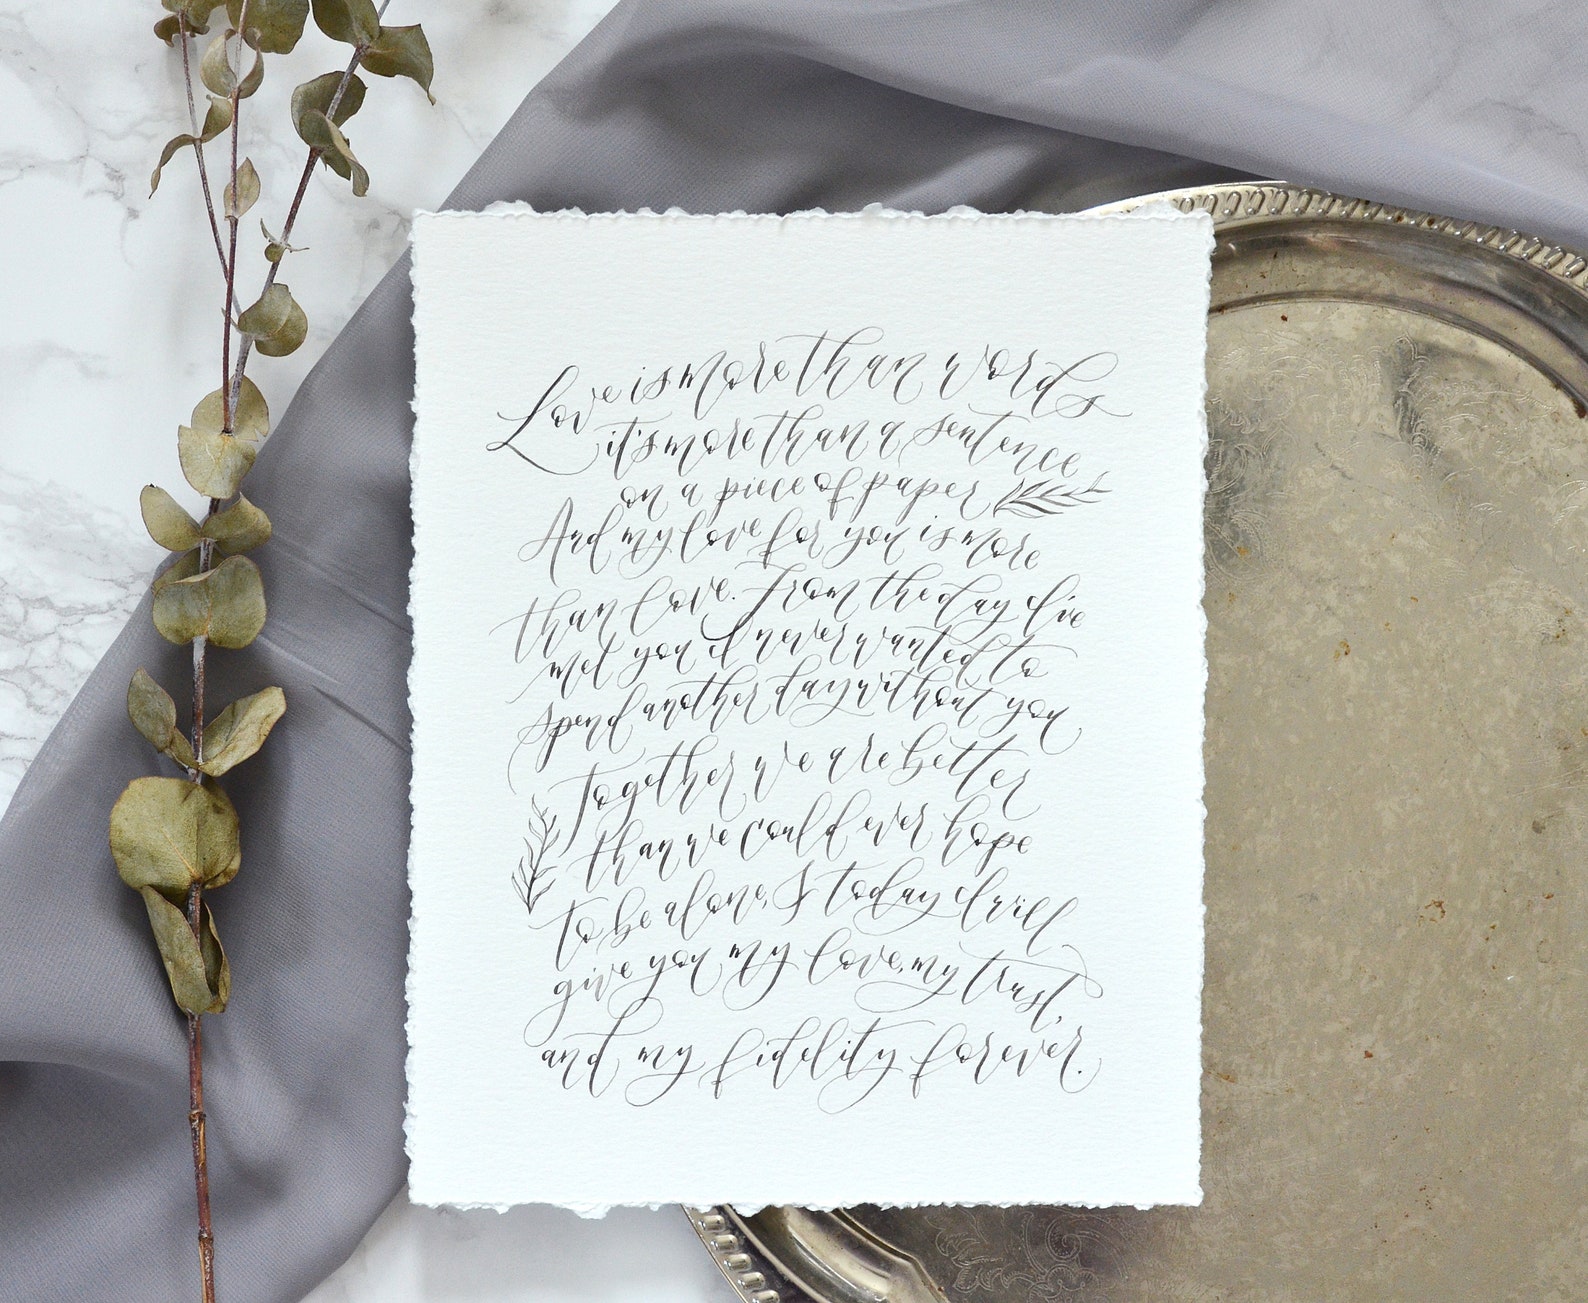 Love is more than words
it's more than a sentence
on a piece of paper
And my love for you is more
than love. From the day I've
met you I never wanted to
spend another day without you
Together we are better
than we could ever hope
to be alone, & today I will
give you my love, my trust,
and my fidelity forever.